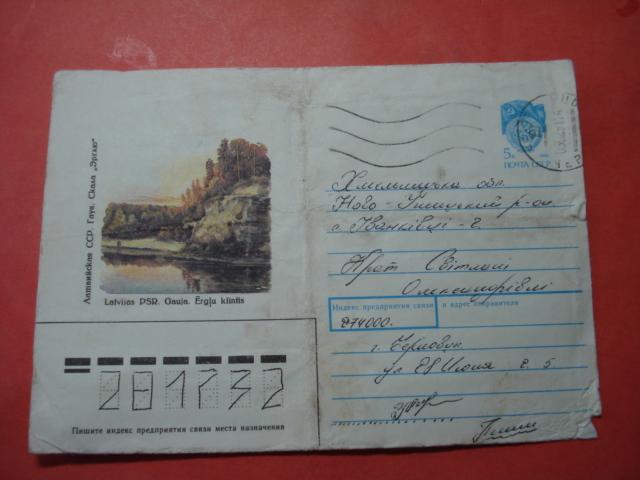 Латвийская ССР. Гауя. Скала „Эрглю"
Latvijas PSR. Gauja. Ērgļu klintis
5к
ПОЧТА СССР
Хмельницька обл.
Ново-Ушицький р-он
с. Іванківці - 2.
Прот Світлані
Олександрівні
Индекс предприятия связи и адрес отправителя
274000.
г. Черновцы
ул 28 Июня 2. 5
Пиши
281732
Пишите индекс предприятия связи места назначения